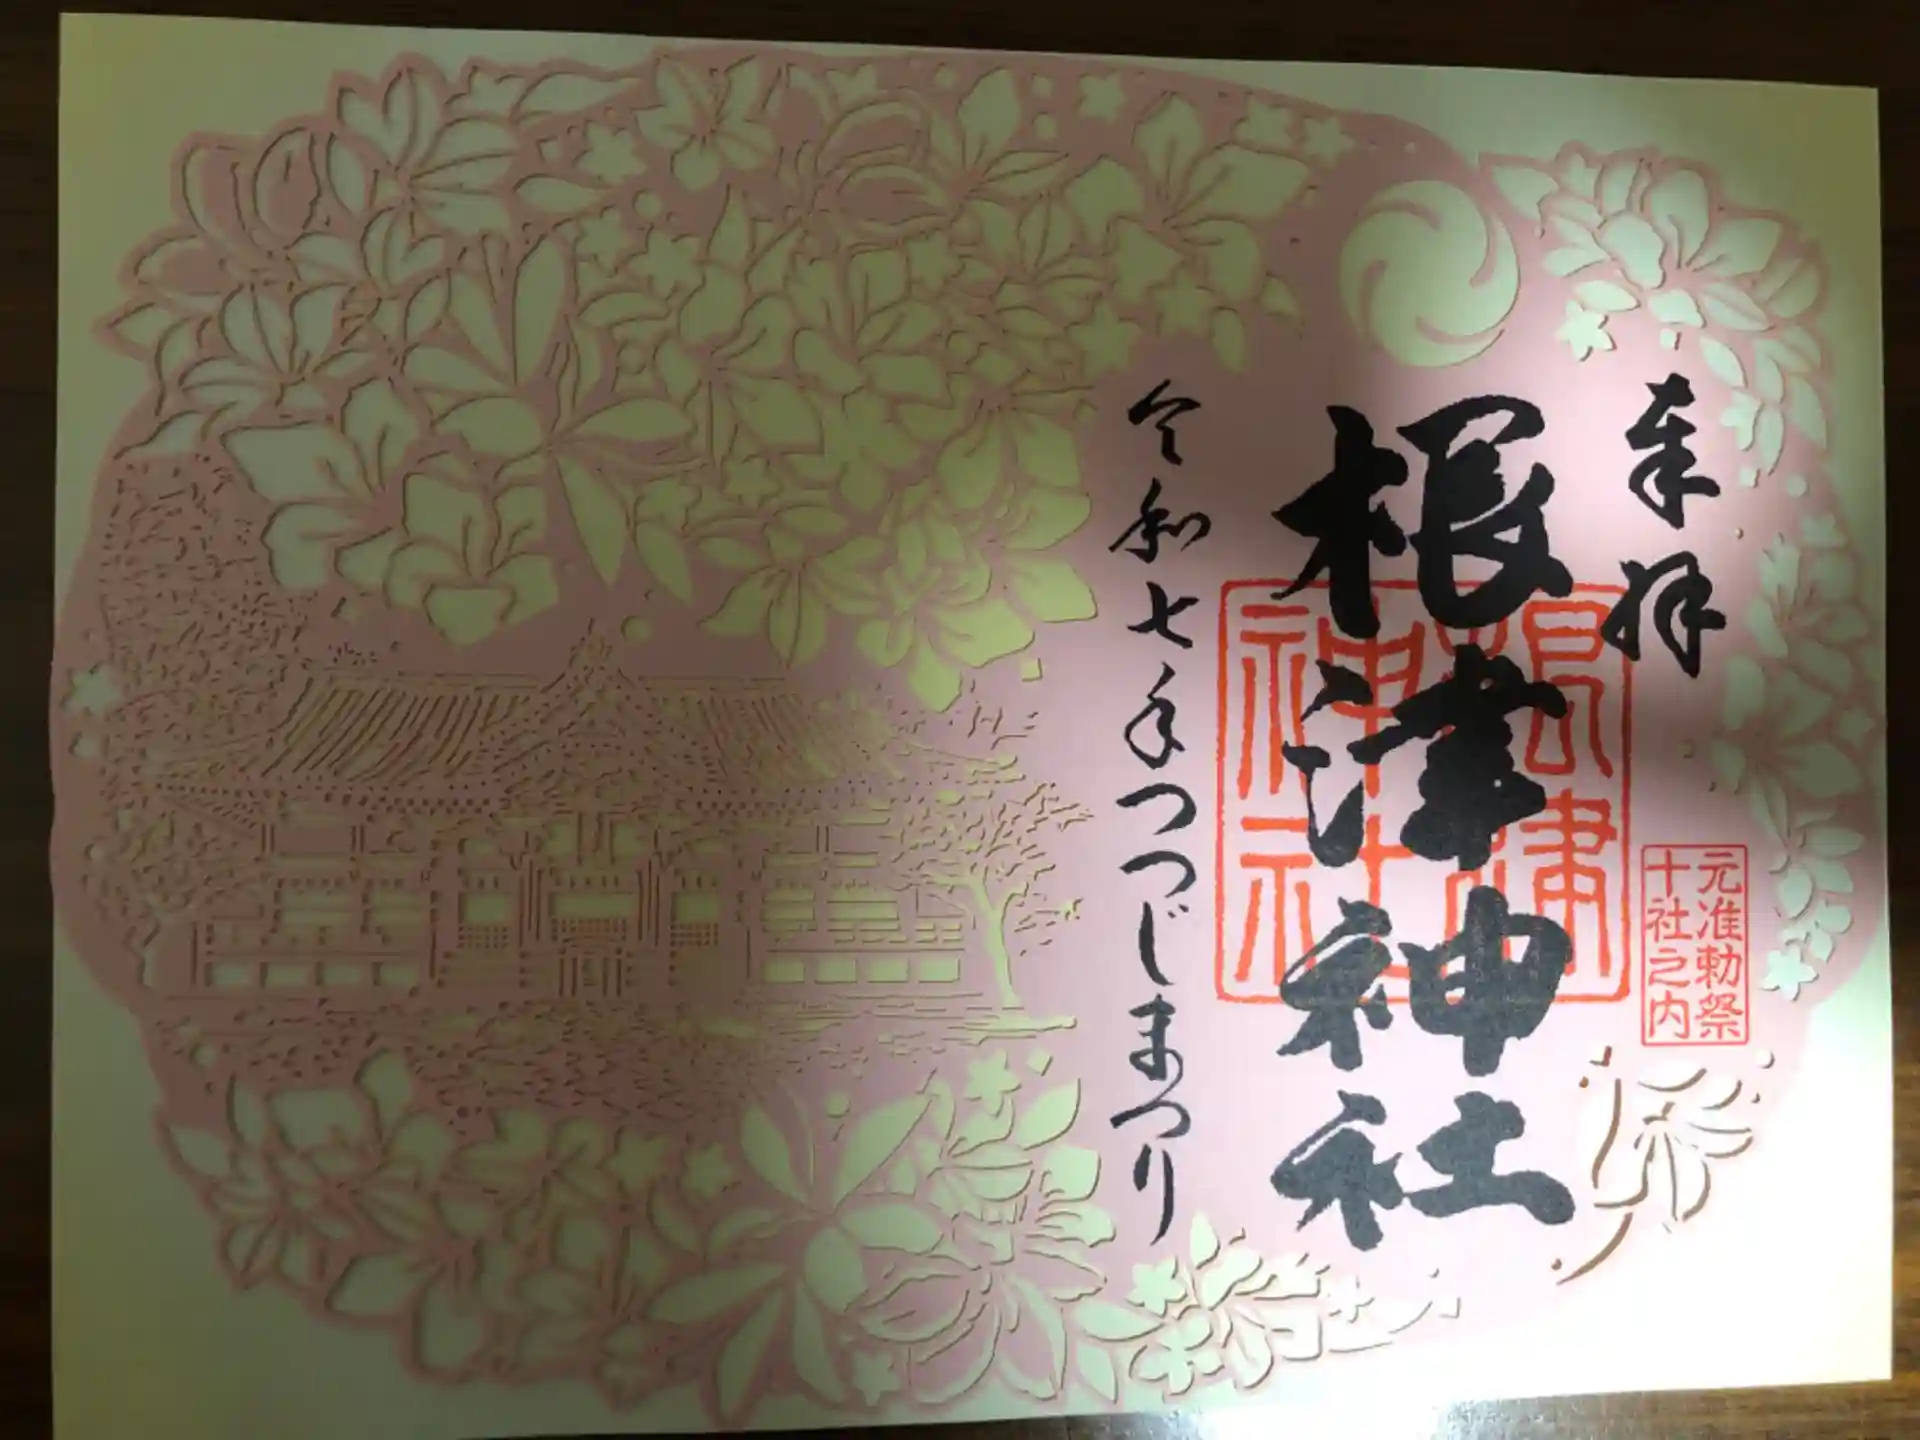 奉拝
元准勅祭
十社之内
根津神社
根津
神社
令和七年つつじまつり
彩